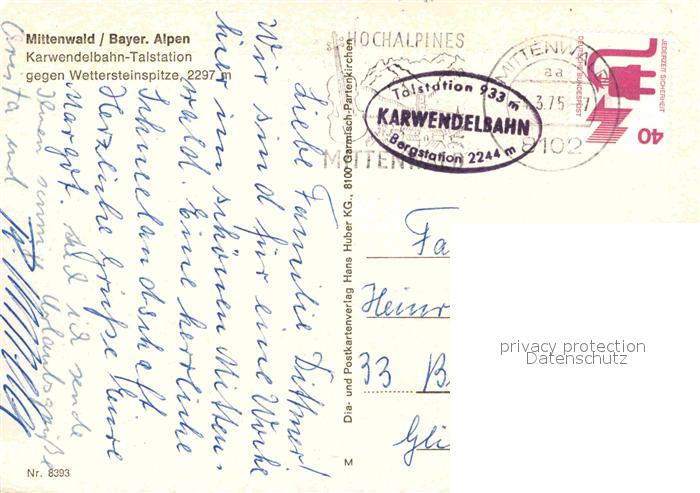 Mittenwald / Bayer. Alpen
Karwendelbahn-Talstation
gegen Wettersteinspitze, 2297 m
Liebe Familie Dittmer!
Wir sind für eine Woche
hier im schönen Mitten-
wald. Eine herrliche
Schneelandschaft
Herzliche Grüße Eure
Margot. und ich sende
Ihnen sonnige Urlaubsgrüße
und
Nr. 8393
Dia- und Postkartenverlag Hans Huber KG., 8100 Garmisch-Partenkirchen
M
HOCHALPINES
MITTENWALD
Talstation 933 m
KARWENDELBAHN
Bergstation 2244 m
MITTENWA
aa
3.75
8102
DEUTSCHE BUNDESPOST
JEDERZEIT SICHERHEIT
40
Fa
Heinr
33 B
Gli
privacy protection
Datenschutz